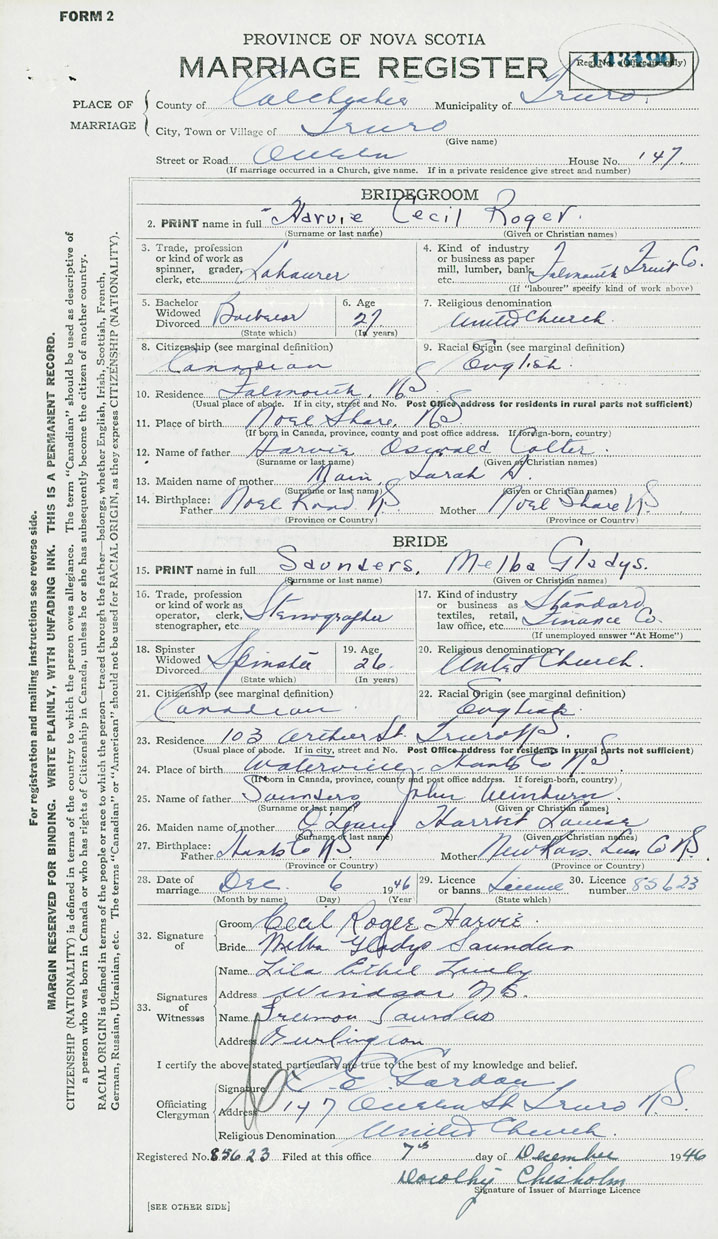 FORM 2
PROVINCE OF NOVA SCOTIA
MARRIAGE REGISTER
Reg. No. (Office only)
PLACE OF MARRIAGE
County of Colchester Municipality of Truro
City, Town or Village of Truro
(Give name)
Street or Road Queen House No. 147
(If marriage occurred in a Church, give name. If in a private residence give street and number)
BRIDEGROOM
2. PRINT name in full Harvie Cecil Roger
(Surname or last name) (Given or Christian names)
3. Trade, profession or kind of work as spinner, grader, clerk, etc. Labourer
4. Kind of industry or business as paper mill, lumber, bank, etc. Falmouth Fruit Co.
(If "labourer" specify kind of work above)
5. Bachelor Widowed Divorced Bachelor
(State which)
6. Age 27
(In years)
7. Religious denomination United Church
8. Citizenship (see marginal definition) Canadian
9. Racial Origin (see marginal definition) English
10. Residence Falmouth, NS
(Usual place of abode. If in city, street and No. Post Office address for residents in rural parts not sufficient)
11. Place of birth Noel Shore, NS
(If born in Canada, province, county and post office address. If foreign-born, country)
12. Name of father Harvie Oswald Colter
(Surname or last name) (Given or Christian names)
13. Maiden name of mother Main, Sarah A.
(Surname or last name) (Given or Christian names)
14. Birthplace: Father Noel Road NS Mother Noel Shore NS.
(Province or Country) (Province or Country)
BRIDE
15. PRINT name in full Saunders, Melba Gladys.
(Surname or last name) (Given or Christian names)
16. Trade, profession or kind of work as operator, clerk, stenographer, etc Stenographer
17. Kind of industry or business as textiles, retail, law office, etc. Standard Finance Co.
(If unemployed answer "At Home")
18. Spinster Widowed Divorced Spinster
(State which)
19. Age 26
(In years)
20. Religious denomination United Church.
21. Citizenship (see marginal definition) Canadian
22. Racial Origin (see marginal definition) English
23. Residence 103 Arthur St. Truro NS.
(Usual place of abode. If in city, street and No. Post Office address for residents in rural parts not sufficient)
24. Place of birth Waterville, Hants Co NS
(If born in Canada, province, county and post office address. If foreign-born, country)
25. Name of father Saunders John
(Surname or last name) (Given or Christian names)
26. Maiden name of mother O'Leary Harriet Louise
(Surname or last name) (Given or Christian names)
27. Birthplace: Father Hants Co NS. Mother New Ross Lun Co NS.
(Province or Country) (Province or Country)
28. Date of marriage Dec. 6 1946
(Month by name) (Day) (Year)
29. Licence or banns Licence
(State which)
30. Licence number 85623
32. Signature of
Groom Cecil Roger Harvie.
Bride Melba Gladys Saunders
33. Signatures of Witnesses
Name Lila Ethel
Address Windsor N.S.
Name Saunders
Address Burlington
I certify the above stated particulars are true to the best of my knowledge and belief.
Officiating Clergyman
Signature Gordon
Address 147 Queen St Truro NS.
Religious Denomination United Church.
Registered No. 85623 Filed at this office 7th day of December 1946
Dorothy Chisholm
Signature of Issuer of Marriage Licence
[SEE OTHER SIDE]
For registration and mailing instructions see reverse side.
MARGIN RESERVED FOR BINDING. WRITE PLAINLY, WITH UNFADING INK. THIS IS A PERMANENT RECORD.
CITIZENSHIP (NATIONALITY) is defined in terms of the country to which the person owes allegiance. The term "Canadian" should be used as descriptive of
a person who was born in Canada or who has rights of Citizenship in Canada, unless he or she has subsequently become the citizen of another country.
RACIAL ORIGIN is defined in terms of the people or race to which the person—traced through the father—belongs, whether English, Irish, Scottish, French,
German, Russian, Ukrainian, etc. The terms "Canadian" or "American" should not be used for RACIAL ORIGIN, as they express CITIZENSHIP (NATIONALITY).